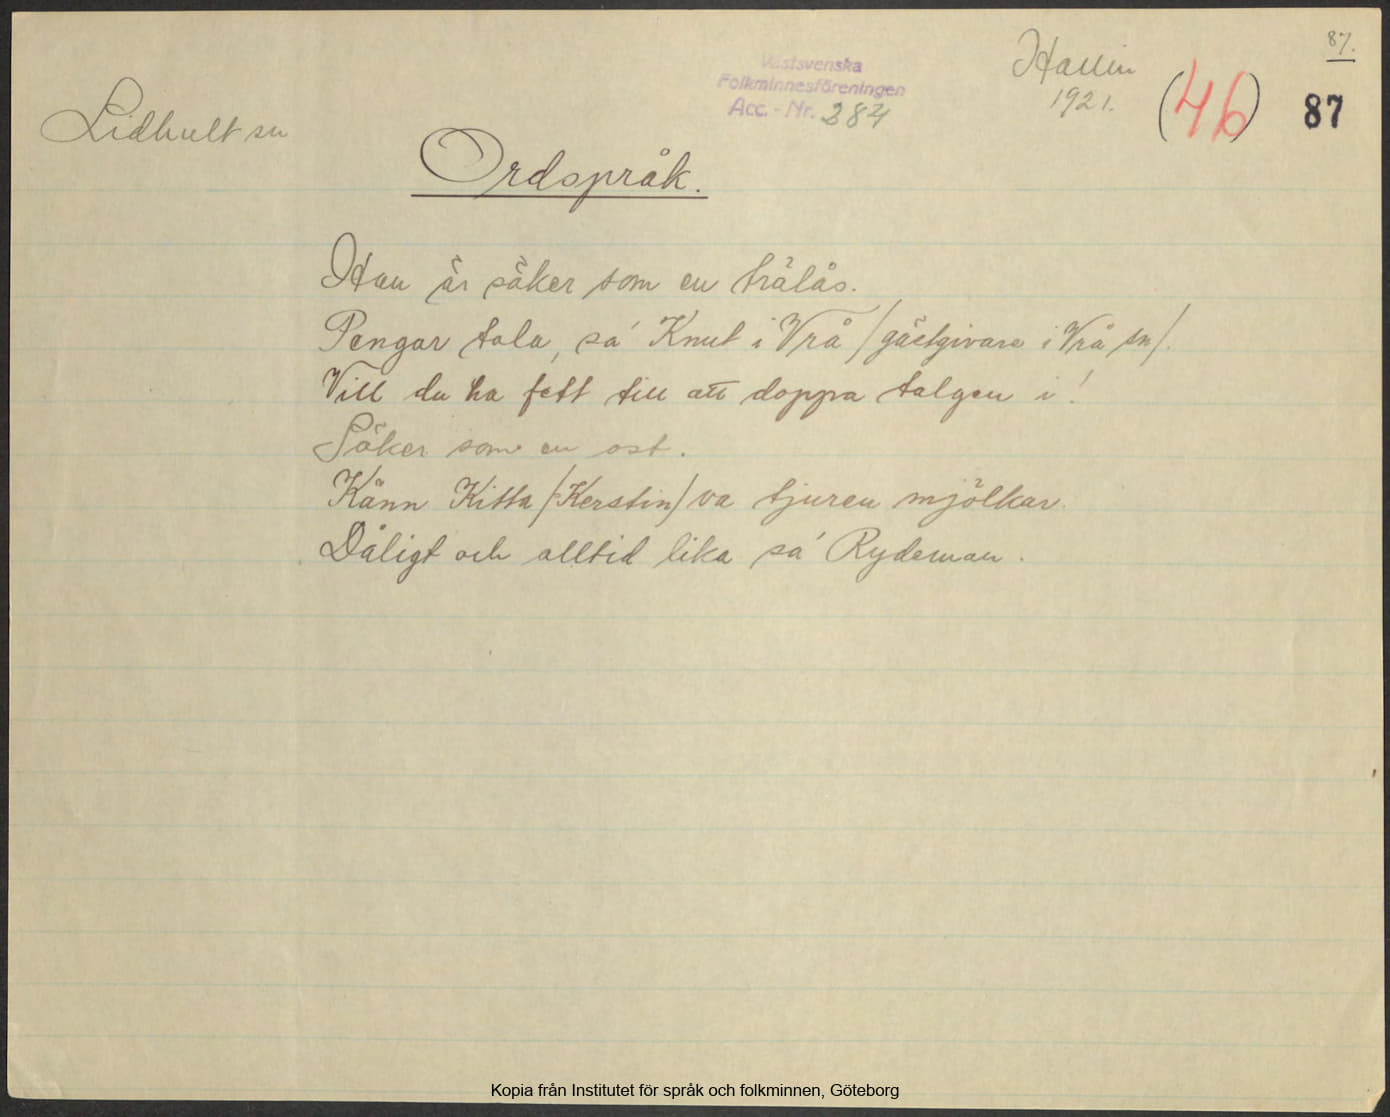 87.
Västsvenska
Folkminnesföreningen
Acc.-Nr. 284
Hallin
1921.
(46)
87
Lidhult sn
Ordspråk.
Han är säker som en trälås.
Pengar tala, sa' Knut i Vrå /gästgivare i Vrå sn/.
Vill du ha fett till att doppa talgen i!
Säker som en ost.
Känn Kitta /Kerstin/ va tjuren mjölkar.
Dåligt och alltid lika sa' Rydeman.
Kopia från Institutet för språk och folkminnen, Göteborg